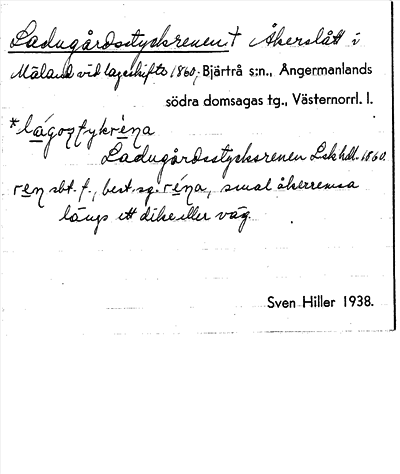 Ladugårdsstycksrenen † Åkerslått i
Måland vid lagaskifte 1860, Bjärtrå s:n., Ångermanlands
södra domsagas tg., Västernorrl. l.
Ladugårdsstycksrenen Lskhdl. 1860.
ren sbt. f., best. sg. réna, smal åkerremsa
längs ett dike eller väg.
Sven Hiller 1938.